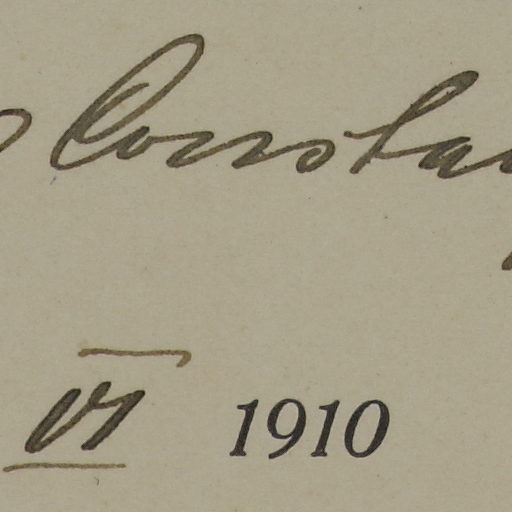 Consta
VI 1910